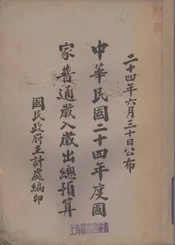 二十四年六月三十日公布
中華民國二十四年度國
家普通歲入歲出總預算
國民政府主計處編印